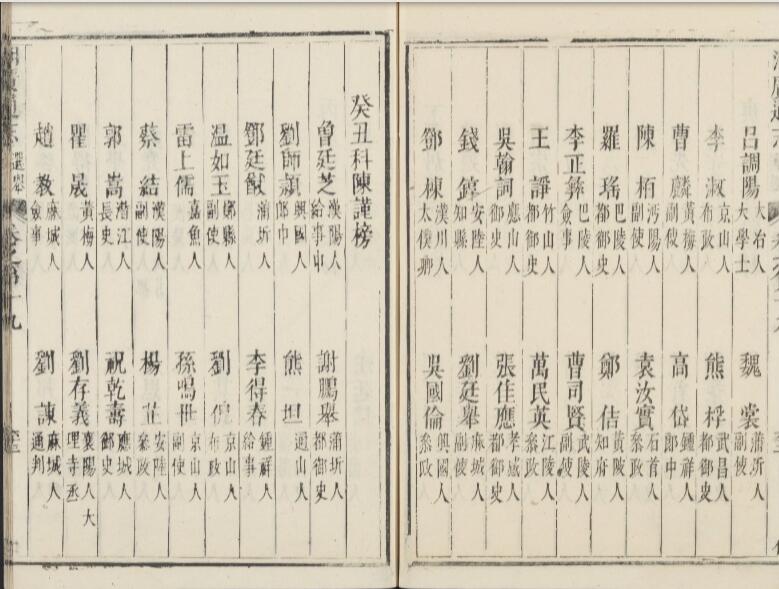 呂調陽 大冶人 大學士 魏裳 蒲圻人 副使
李淑 京山人 布政 熊桴 武昌人 都御史
曹麟 黃梅人 副使 高岱 鍾祥人 郎中
陳柏 沔陽人 副使 袁汝實 石首人 叅政
羅瑤 巴陵人 都御史 鄭佶 人 知府
李正彝 巴陵人 僉事 曹司賢 武陵人 副使
王諍 竹山人 都御史 萬民英 江陵人 叅政
吳翰詞 應山人 御史 張佳應 人 都御史
錢錞 安陸人 知縣 劉廷舉 麻城人 副使
鄧棟 漢川人 太僕卿 吳國倫 興國人 叅政
癸丑科陳謹榜
曾廷芝 漢陽人 給事中 謝鵬舉 蒲圻人 都御史
劉師潁 興國人 郎中 熊坦 通山人
鄧廷猷 蒲圻人 李得春 鍾祥人 給事
温如玉 鄖縣人 副使 劉侃 京山人 布政
雷上儒 嘉魚人 孫鳴世 京山人 副使
蔡結 漢陽人 副使 楊芷 安陸人 叅政
郭嵩 潛江人 長史 祝乾壽 應城人 御史
瞿晟 黃梅人 劉存義 襄陽人 大理寺丞
趙教 麻城人 僉事 劉諫 麻城人 通判
選舉